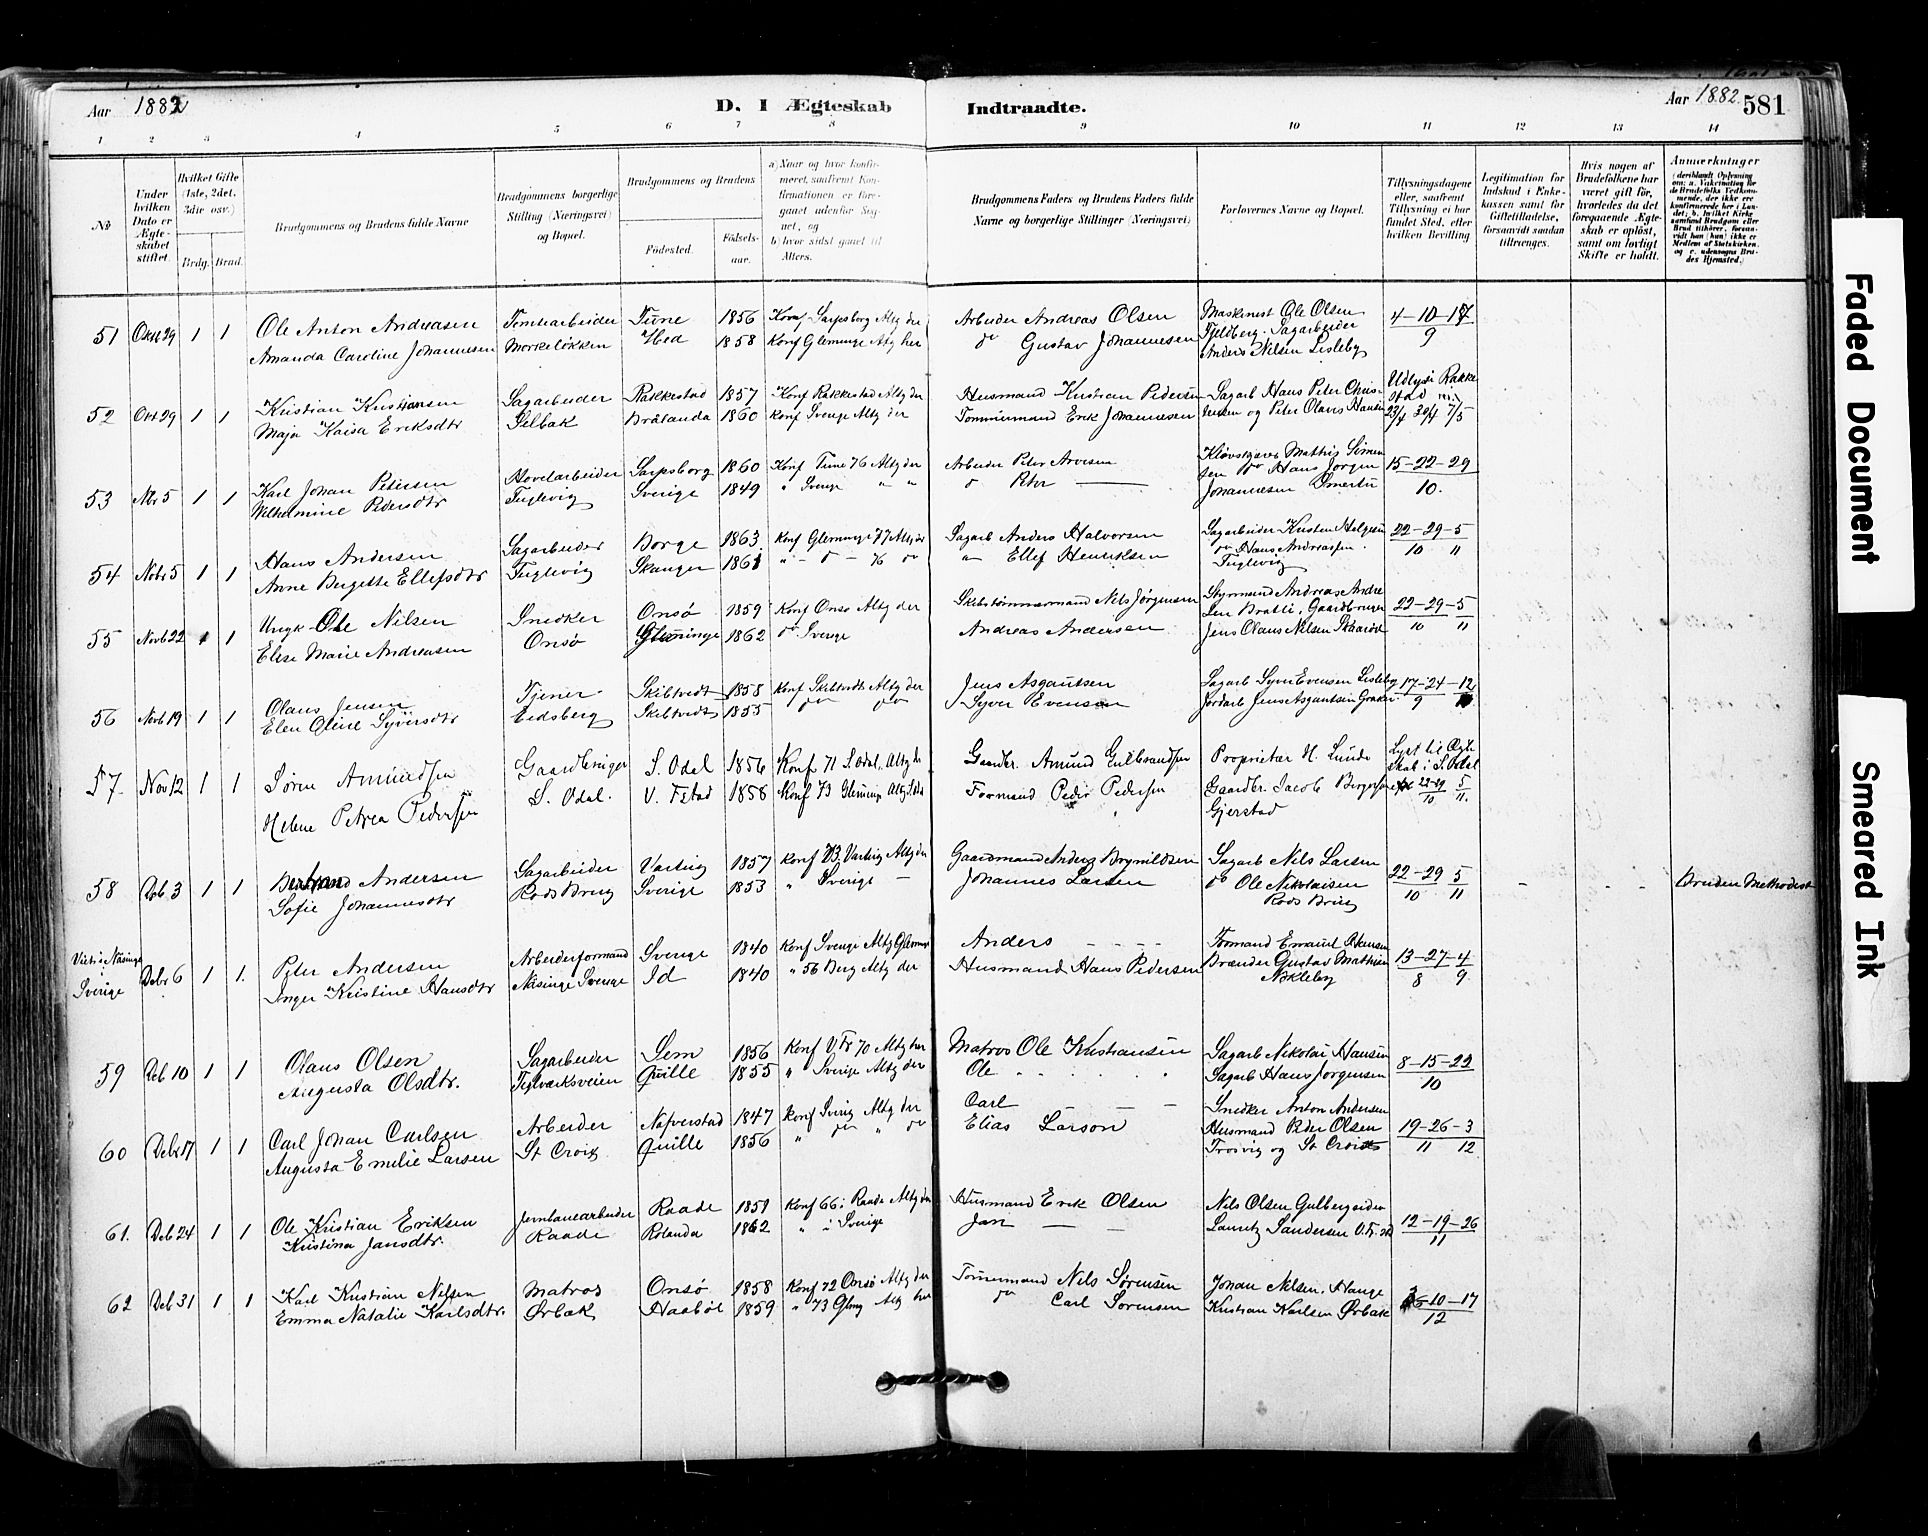 Aar 1882
D. I Ægteskab Indtraadte.
Aar 1882. 581
1 2 3 4 5 6 7 8 9 10 11 12 13 14
No
Under hvilken Dato er Ægteskabet stiftet.
Hvilket Gifte (1ste, 2det, 3die osv.)
Brdg. Brud.
Brudgommens og Brudens fulde Navne
Brudgommens borgerlige Stilling (Næringsvei) og Bopæl.
Brudgommens og Brudens
Fødested.
Fødselsaar.
a) Naar og hvor konfirmeret, saafremt Konfirmationen er foregaaet udenfor Sognet, og
b) hvor sidst gaaet til Alters.
Brudgommens Faders og Brudens Faders fulde Navne og borgerlige Stillinger (Næringsvei)
Forlovernes Navne og Bopæl.
Tillysningsdagene eller, saafremt Tillysning ei har fundet Sted, efter hvilken Bevilling
Legitimation for Indskud i Enkekassen samt for Giftetilladelse, forsaavidt saadan tiltrænges.
Hvis nogen af Brudefolkene har været gift før, hvorledes da det foregaaende Ægteskab er opløst, samt om lovligt Skifte er holdt.
Anmærkninger
51 Oktr 29 1 1 Ole Anton Andreasen Tomtearbeider Tune 1856 Konf Sarpsborg Altg der Arbeider Andreas Olsen Maskinist Ole Olsen 4-10-17
Amanda Caroline Johannesen Mørkeløkken 1858 Konf Glemminge Altg her do Gustav Johannesen Fjeldberg. Sagarbeider 9
Anders Nilsen Lisleby
52 Okt 29 1 1 Kristian Kristiansen Sagarbeider Rakkestad 1857 Konf Rakkestad Altg der Husmand Kristian Pedersen Sagarb Hans Peter Chris- Udlyst Rakkestad
Maja Kaisa Eriksdtr Selbak Brålanda 1860 Konf Sverige Altg der Tømmermand Erik Johannesen tensen og Peter Olavus Hansen 23/4 30/4 7/5
53 Nbr 5 1 1 Karl Johan Petersen Høvelarbeider Sarpsborg 1860 Konf Tune 76 Altg der Arbeider Peter Arvesen 15-22-29
Wilhelmine Pedersdtr Fuglevig Sverige 1849 " Sverige " " do Peter — Johannesen 10.
54 Nobr 5 1 1 Hans Andersen Sagarbeider Borge 1863 Konf Glemminge 77 Altg der Sagarb Anders Halvorsen Sagarbeider Kristen Helgesen 22-29-5
Anne Birgitte Ellefsdtr Fuglevig Skanger 1861 " - do - 76 do Ellef Henriksen do Hans Andreassen 10 11
Fuglevig
55 Novb 22 1 1 Ungk. Ole Nilsen Snedker Onsø 1859 Konf Onsø Altg der Skibstømmermand Nils Jørgensen Styrmand Andreas Andre- 22-29-5
Elise Marie Andreasen Onsø Glemminge 1862 do Sverige Andreas Andersen sen Bratli, Gaardbruger 10 11
Jens Olaus Nilsen
56 Novb 19 1 1 Olaus Jensen Tjener Skibtvedt 1858 Konf Skibtvedt Altg der Jens Asgautsen Sagarb Syver Evensen Lisleby 17-24-
Elen Oline Syversdtr Eidsberg Skibtvedt 1855 do do Syver Evensen Jordarb Jens Asgautsen 9
57. Nov 12 1 1 Søren Amundsen Gaardbruger S. Odal 1856 Konf 71 S. Odal. Altg der Gaardbr. Amund Gulbrandsen Proprietær H. Lunde Lyst til Ægteskab i S. Odal
Helene Petrea Pedersen S. Odal. V. Fstad 1858 Konf 73 Glemminge Altg Formand Peder Pedersen Gaardbr. Jacob 22-29 5
Gjerstad 10 11.
58 Deb 3 1 1 Andersen Sagarbeider Varteig 1857 Konf 73 Varteig Altg der Gaardmand Anders Brynildsen Sagarb Nils Larsen 22-29 5
Sofie Johannesdtr Rods Brug Sverige 1853 " Sverige — Johannes Larsen do Ole Nikolaisen 10 11
Rods Brug
Bruden Methodist
Viet i Næsinge Sverige Debr 6 1 1. Peter Andersen Arbeiderformand Sverige 1840 Konf Sverige Altg Glemmi Anders - - - - Formand 13-27-4
Inger Kristine Hansdtr Næsinge Sverige Id 1840 " 56 Berg Altg der Husmand Hans Pedersen Brænder Gustav Mathisen 8 9
Nøkleby
59 Deb 10 1 1 Olaus Olsen Sagarbeider Sem 1856 Konf V Fr 70 Altg her Matros Ole Kristiansen Sagarb Nikolai Hansen 8-15-22
Augusta Olsdtr. Teglværksveien Qville 1855 " Sverige Altg der Ole Sagarb Hans Jørgensen 10
60 Debr 17 1 1 Carl Johan Carlsen Arbeider Nafverstad 1847 Konf Sverig Altg der Carl — — — Snedker Anton Andersen 19-26-3
Augusta Emelie Larsen St Croix Qville 1856 " do " do Elias Larson Husmand Peder Olsen 11 12
Trosvig og St Croix
61. Deb 24 1 1 Ole Kristian Eriksen Jernbanearbeider Raade 1851 Konf 66 i Raade Altg der Husmand Erik Olsen Nils Olsen 12-19-26
Kristina Jansdtr. Raade Rolanda 1862 " i Sverige Jan — — Lauritz Sandersen 11
62 Deb 31 1 1 Karl Kristian Nilsen Matros Onsø 1858 Konf 72 Onsø Altg der Tømermand Nils Sørensen Johan Nilsen, Hauge 3-10-17
Emma Natalie Karlsdtr. Ørbak Haabøl 1859 " 73 Glemg Altg her do Carl Sørensen Kristian Karlsen Ørbak 12
Faded Document
Smeared Ink